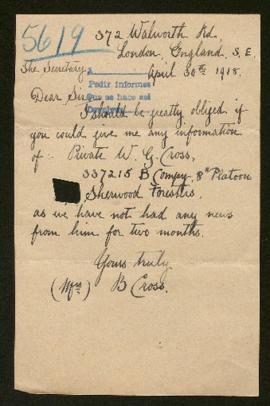 5619
372 Walworth Rd.
London, England, S. E.
The Secretary
April 30th 1918.
Pedir informes
Dear Sir
I should be greatly obliged if
you could give me any information
of :- Private W. G. Cross,
337215 B Compy, 8th Platoon
Sherwood Foresters
as we have not had any news
from him for two months.
Yours truly
(Mrs) B Cross.